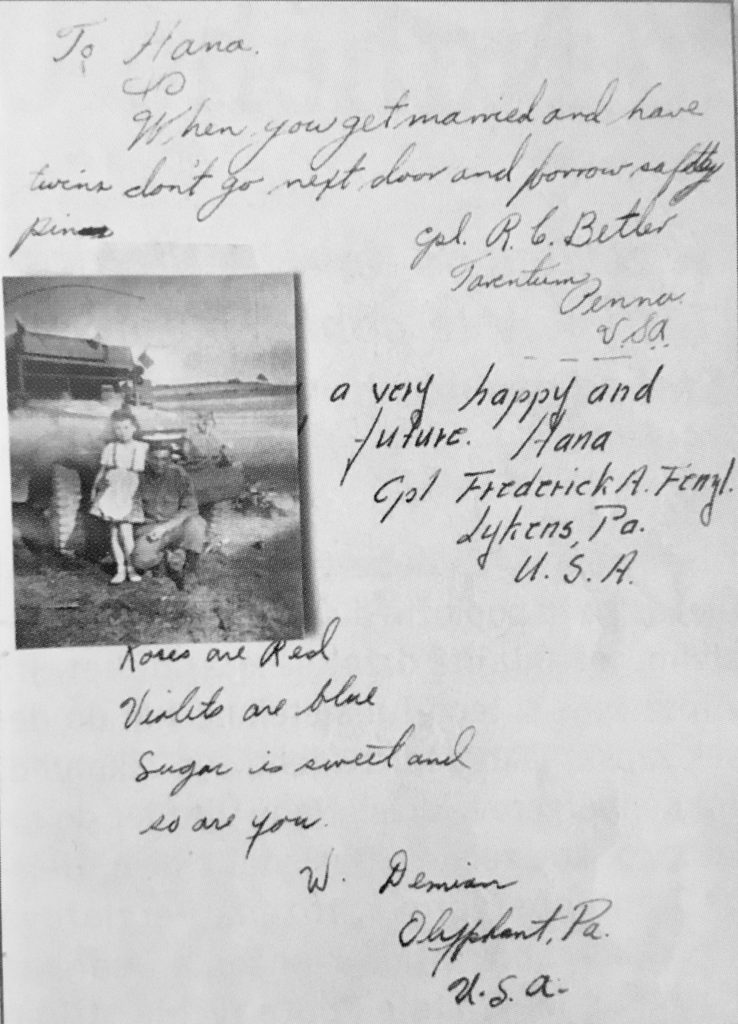 To Hana.
When you get married and have
twins don't go next door and borrow safety
pins
Cpl. R. C. Betler
Tarentum
Penna.
U.S.A.
a very happy and
future. Hana
Cpl Frederick A. Fenzl.
Lykens, Pa.
U. S. A.
Roses are Red
Violets are blue
Sugar is sweet and
so are you.
W. Demian
Olyphant, Pa.
U.S.A.